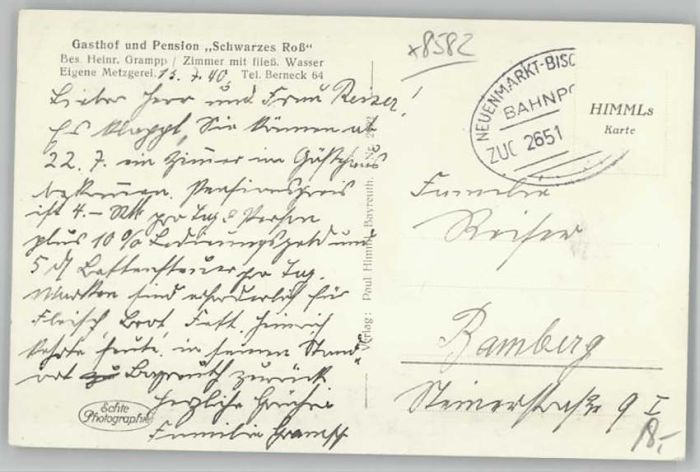 Gasthof und Pension „Schwarzes Roß“
Bes. Heinr. Grampp / Zimmer mit fließ. Wasser
Eigene Metzgerei. 15. 7. 40. Tel. Berneck 64
Lieber Herr und Frau Reiser!
Es klappt, Sie können ab
22. 7. ein Zimmer im Gästehaus
bekommen. Pensionspreis
ist 4.– RM pro Tag & Person
plus 10 % Bedienungsgeld und
5 Bettensteuer pro Tag.
Marken sind erforderlich für
Fleisch, Brot, Fett. Heinrich
kehrte heute in seinen Stand-
ort Bayreuth zurück.
Herzliche Grüße
Familie Grampp
Echte
Photographie
Verlag: Paul Himml, Bayreuth.
x8582
NEUENMARKT-BISC
BAHNPO
ZUG 2651
HIMMLs
Karte
Familie
Reiser
Bamberg
Steinerstraße 9 I
18.-